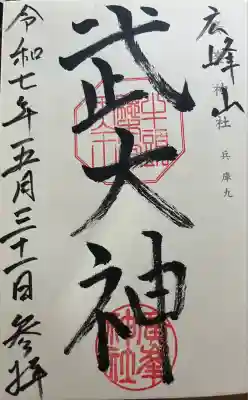 広峰山
神社
兵庫九
武大神
令和七年五月三十一日参拝
廣峯神社